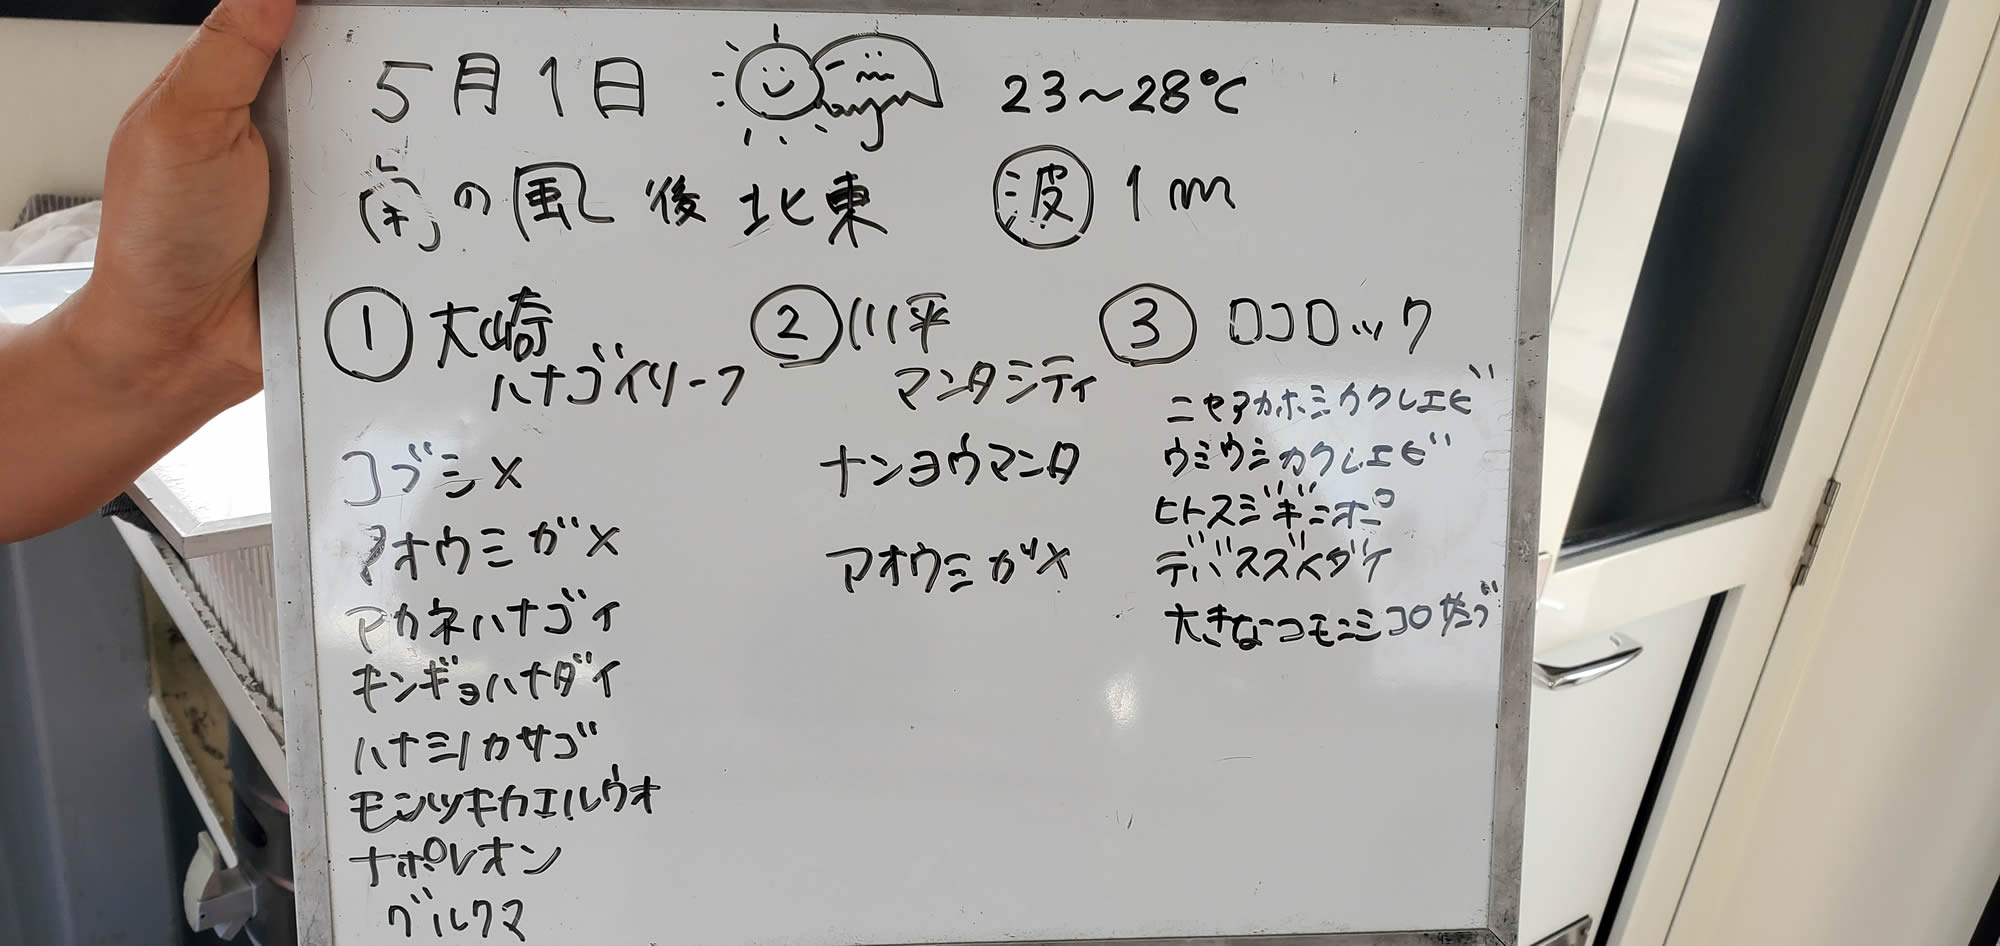 5月1日 23〜28℃
南の風 後 北東 波 1m
① 大崎
ハナゴイリーフ
コブシメ
アオウミガメ
アカネハナゴイ
キンギョハナダイ
ハナミノカサゴ
モンツキカエルウオ
ナポレオン
グルクマ
② 川平
マンタシティ
ナンヨウマンタ
アオウミガメ
③ ロコロック
ニセアカホシカクレエビ
ウミウシカクレエビ
ヒトスジギンポ
デバスズメダイ
大きなコモンシコロサンゴ